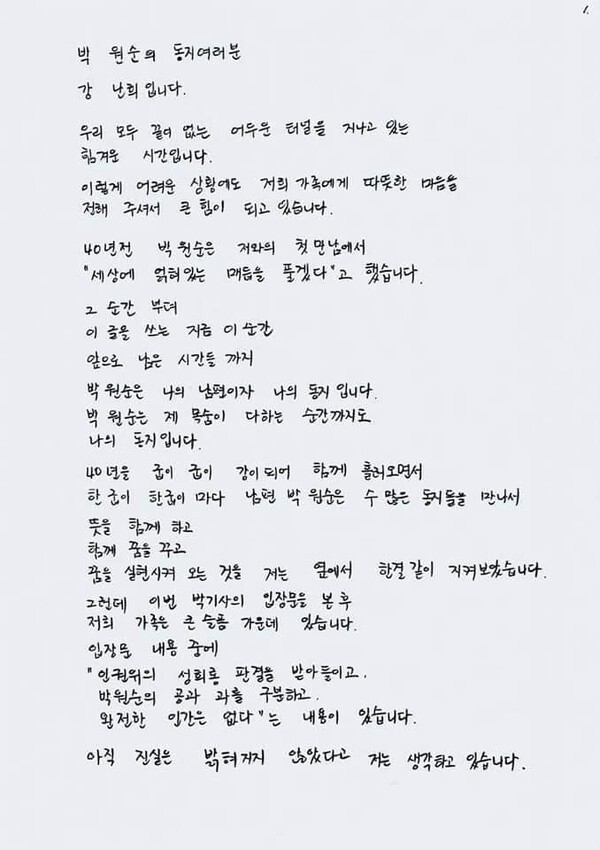 1.
박 원순의 동지여러분
강 난희입니다.
우리 모두 끝이 없는 어두운 터널을 지나고 있는
힘겨운 시간입니다.
이렇게 어려운 상황에도 저희 가족에게 따뜻한 마음을
전해 주셔서 큰 힘이 되고 있습니다.
40년전 박 원순은 저와의 첫 만남에서
"세상에 얽혀있는 매듭을 풀겠다"고 했습니다.
그 순간 부터
이 글을 쓰는 지금 이 순간
앞으로 남은 시간들 까지
박 원순은 나의 남편이자 나의 동지 입니다.
박 원순는 제 목숨이 다하는 순간까지도
나의 동지입니다.
40년을 굽이 굽이 강이되어 함께 흘러오면서
한 굽이 한굽이 마다 남편 박 원순은 수 많은 동지들을 만나서
뜻을 함께 하고
함께 꿈을 꾸고
꿈을 실현시켜 오는 것을 저는 옆에서 한결 같이 지켜보았습니다.
그런데 이번 박기사의 입장문을 본 후
저희 가족은 큰 슬픔 가운데 있습니다.
입장문 내용 중에
"인권위의 성희롱 판결을 받아들이고,
박원순의 공과 과를 구분하고,
완전한 인간은 없다"는 내용이 있습니다.
아직 진실은 밝혀지지 않았다고 저는 생각하고 있습니다.